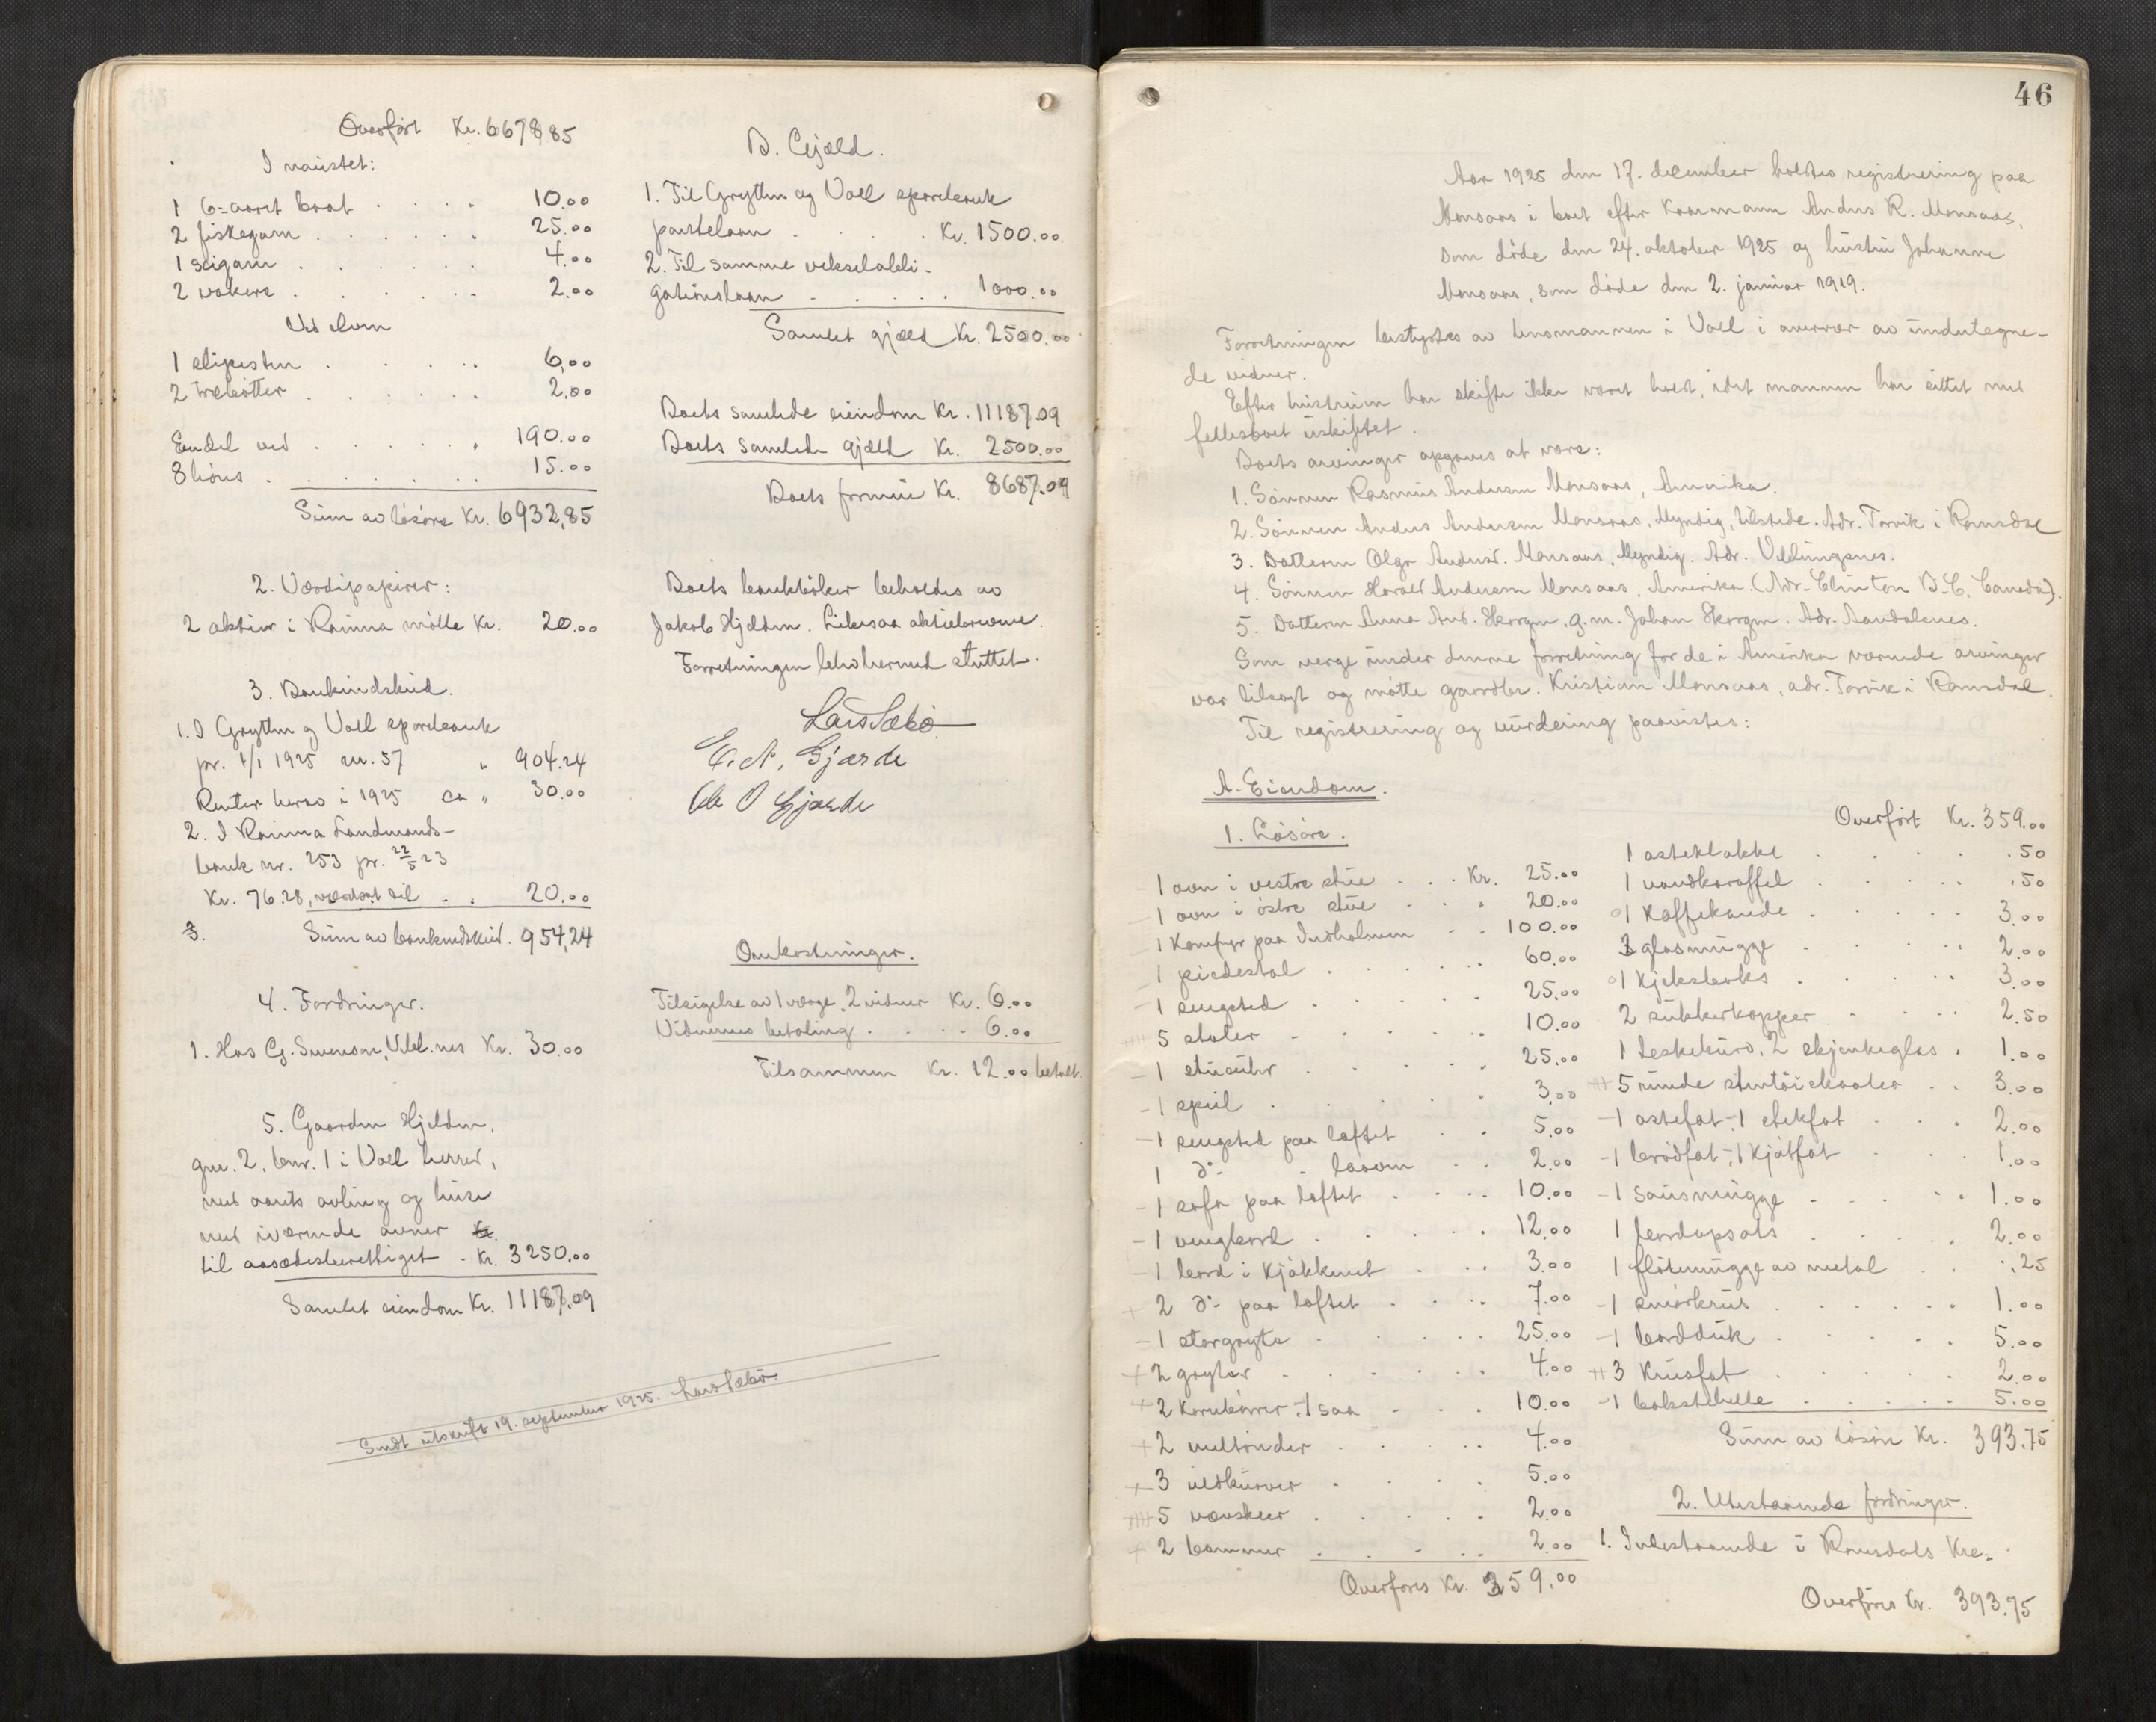 Overført Kr. 6678,85
I naustet:
1 6-aaret baat . . . . 10.00
2 fiskegarn . . . . . 25.00
1 seigarn . . . . . . 4.00
2 vakere . . . . . . 2.00
Ved elven
1 slipesten . . . . . 6,00
2 træbøtter . . . . . 2,00
Endel ved . . . . . . 190.00
8 høns . . . . . . . 15.00
Sum av løsøre Kr. 6932,85
2. Værdipapirer:
2 aktier i Rauma mølle Kr. 20.00
3. Bankindskud.
1. I Grytten og Voll sparebank
pr. 1/1 1925 nr. 57 " 904.24
Renter herav i 1925 ca " 30.00
2. I Rauma Landmands-
bank nr. 253 pr. 22/5 23
Kr. 76.28, værdsat til . . 20.00
3. Sum av bankindskud. 954,24
4. Fordringer.
1. Hos G. Svenson, Vebl.nes Kr. 30.00
5. Gaarden Hjelden,
gnr. 2, bnr. 1 i Voll herred,
med aarets avling og huse
med iværende ovner Kr.
til aasædesberettiget . Kr. 3250.00
Samlet eiendom Kr. 11187.09
Sendt utskrift 19. september 1925. Lars Sæbø
B. Gjæld.
1. Til Grytten og Voll sparebank
pantelaan . . . . . Kr. 1500.00
2. Til samme vekselobli-
gationslaan . . . . . 1000.00
Samlet gjæld Kr. 2500.00
Boets samlede eiendom Kr. 11187.09
Boets samlede gjæld Kr. 2500.00
Boets formue Kr. 8687.09
Boets bankbøker beholdes av
Jakob Hjelden. Likesaa aktiebrevene.
Forretningen blev hermed sluttet.
Lars Sæbø
E. N. Gjærde
Ole O Gjærde
Omkostninger.
Tilsigelse av 1 værge, 2 vidner Kr. 6.00
Vidnernes betaling . . . . 6.00
Tilsammen Kr. 12.00 betalt.
46
Aar 1925 den 17. december holdtes registrering paa
Monsaas i boet efter kaarmann Anders R. Monsaas,
som døde den 24. oktober 1925 og hustru Johanne
Monsaas, som døde den 2. januar 1919.
Forretningen bestyrtes av lensmannen i Voll i overvær av undertegne-
de vidner.
Efter hustruen har skifte ikke været holdt, idet mannen har sittet med
fellesboet uskiftet.
Boets arvinger opgaves at være:
1. Sønnen Rasmus Andersen Monsaas, Amerika.
2. Sønnen Anders Andersen Monsaas, Myndig, tilstede. Adr. Torvik i Romsdal
3. Datteren Olga Andersd. Monsaas, Myndig. Adr. Veblungsnes.
4. Sønnen Harald Andersen Monsaas, Amerika (Adr. Clinton B.C. Canada).
5. Datteren Anna And. Skorgen, g.m. Johan Skorgen. Adr. Aandalsnes.
Som verge under denne forretning for de i Amerika værende arvinger
var tilsagt og møtte gaardbr. Kristian Monsaas, adr. Torvik i Romsdal.
Til registrering og vurdering paavistes:
A. Eiendom.
1. Løsøre.
1 ovn i vestre stue . . . Kr. 25.00
1 ovn i østre stue . . . 20.00
1 Komfyr paa Indholmen . . 100.00
1 piedestal . . . . . 60.00
1 sengsted . . . . . 25.00
5 stoler . . . . . . 10.00
1 stueuhr . . . . . 25.00
1 speil . . . . . . 3.00
1 sengsted paa loftet . . 5.00
1 do - - laaven . . 2.00
1 sofa paa loftet . . . . 10.00
1 vengbord . . . . . 12.00
1 bord i kjøkkenet . . . 3.00
2 do paa loftet . . . . 7.00
1 storgryte . . . . . 25.00
2 gryter . . . . . . 4.00
2 kornbørrer, 1 saa . . . 10.00
2 meltønder . . . . . 4.00
3 vedkurver . . . . . 5.00
5 . . . . . 2.00
2 bommer . . . . . 2.00
Overføres Kr. 359.00
Overført Kr. 359.00
1 osteklokke . . . . .50
1 vandkaraffel . . . . . .50
1 Kaffekande . . . . . 3.00
3 glasmugge . . . . . 2.00
1 Kjeksboks . . . . . 3.00
2 sukkerkopper . . . . 2.50
1 , 2 skjenkeglas . 1.00
5 runde stentøiskaaler . . 3.00
1 ostefat, 1 stekfat . . . 2.00
1 brødfat, 1 kjøtfat . . . 1.00
1 sausmugge . . . . . 1.00
1 bordopsats . . . . . 2.00
1 fløtemugge av metal . . .25
1 smørkrus . . . . . . 1.00
1 bordduk . . . . . 5.00
3 Krusfat . . . . . 2.00
1 bakstehelle . . . . . 5.00
Sum av løsøre Kr. 393.75
2. Utestaaende fordringer.
1. Indestaaende i Romsdals Kre-
Overføres Kr. 393.75